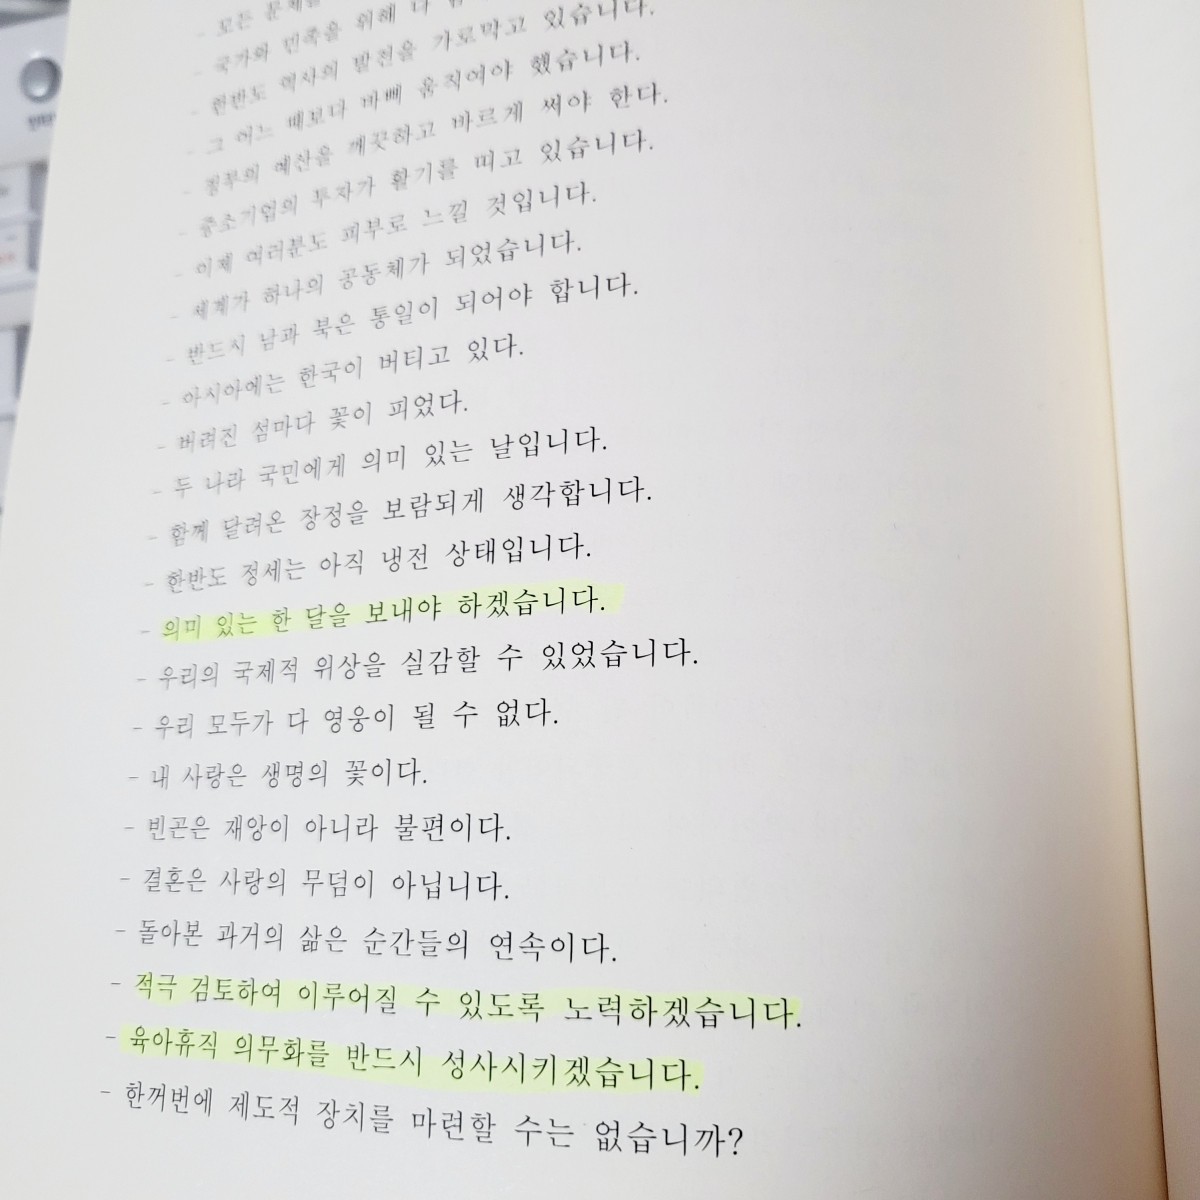 - 모든 문제를
- 국가와 민족을 위해 다
- 한반도 역사의 발전을 가로막고 있습니다.
- 그 어느 때보다 바삐 움직여야 했습니다.
- 정부의 예산을 깨끗하고 바르게 써야 한다.
- 중소기업의 투자가 활기를 띠고 있습니다.
- 이제 여러분도 피부로 느낄 것입니다.
- 세계가 하나의 공동체가 되었습니다.
- 반드시 남과 북은 통일이 되어야 합니다.
- 아시아에는 한국이 버티고 있다.
- 버려진 섬마다 꽃이 피었다.
- 두 나라 국민에게 의미 있는 날입니다.
- 함께 달려온 장정을 보람되게 생각합니다.
- 한반도 정세는 아직 냉전 상태입니다.
- 의미 있는 한 달을 보내야 하겠습니다.
- 우리의 국제적 위상을 실감할 수 있었습니다.
- 우리 모두가 다 영웅이 될 수 없다.
- 내 사랑은 생명의 꽃이다.
- 빈곤은 재앙이 아니라 불편이다.
- 결혼은 사랑의 무덤이 아닙니다.
- 돌아본 과거의 삶은 순간들의 연속이다.
- 적극 검토하여 이루어질 수 있도록 노력하겠습니다.
- 육아휴직 의무화를 반드시 성사시키겠습니다.
- 한꺼번에 제도적 장치를 마련할 수는 없습니까?